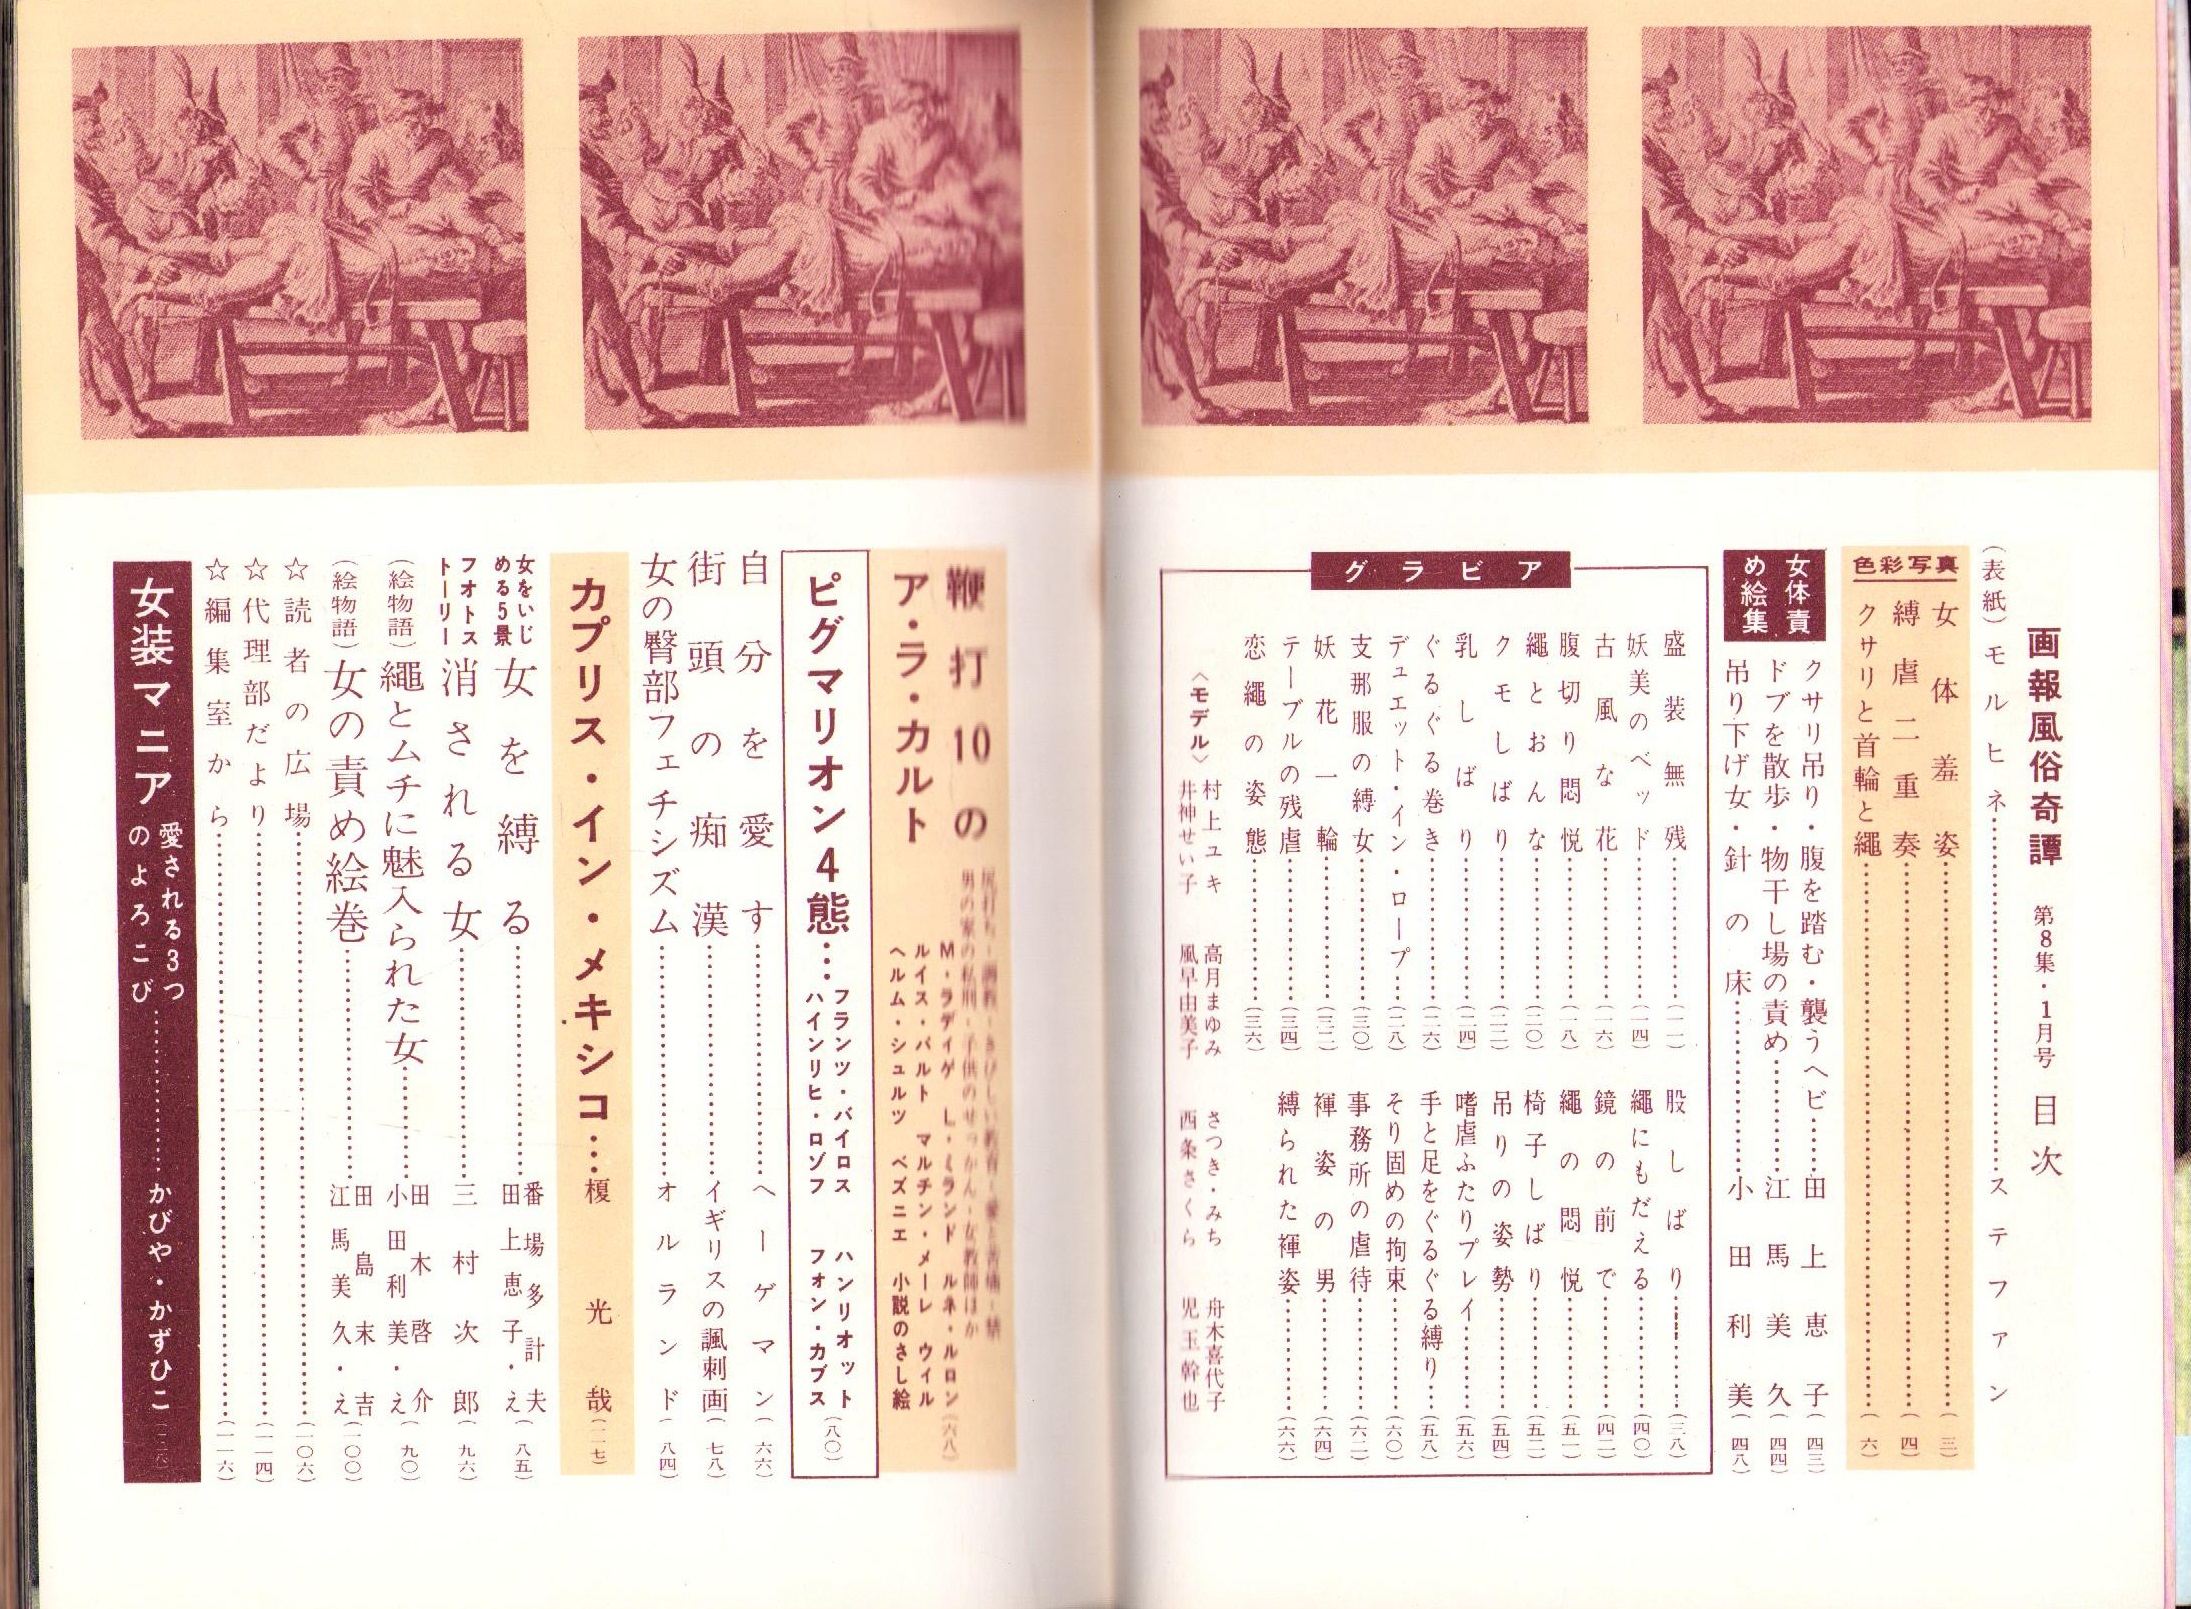 画報風俗奇譚 第8集・1月号 目次
(表紙)モルヒネ……ステファン
色彩写真
女体羞姿……(三)
縛虐二重奏……(四)
クサリと首輪と縄……(六)
女体責め絵集
クサリ吊り・腹を踏む・襲うヘビ……田上恵子(四三)
ドブを散歩・物干し場の責め……江馬美久(四四)
吊り下げ女・針の床……小田利美(四八)
グラビア
盛装無残……(一一)
妖美のベッド……(一四)
古風な花……(一六)
腹切り悶悦……(一八)
縄とおんな……(二〇)
クモしばり……(二二)
乳しばり……(二四)
ぐるぐる巻き……(二六)
デュエット・イン・ロープ……(二八)
支那服の縛女……(三〇)
妖花一輪……(三二)
テーブルの残虐……(三四)
恋縄の姿態……(三六)
股しばり……(三八)
縄にもだえる……(四〇)
鏡の前で……(四二)
縄の悶悦……(五一)
椅子しばり……(五二)
吊りの姿勢……(五四)
嗜虐ふたりプレイ……(五六)
手と足をぐるぐる縛り……(五八)
そり固めの拘束……(六〇)
事務所の虐待……(六二)
褌姿の男……(六四)
縛られた褌姿……(六六)
〈モデル〉
村上ユキ 高月まゆみ さつき・みち 舟木喜代子
井神せい子 風早由美子 西条さくら 児玉幹也
鞭打10の
ア・ラ・カルト
尻打ち・調教・きびしい教育・愛と苦痛・
男の家の私刑・子供のせっかん・女教師ほか
M・ラディゲ L・ミランド ルネ・ルロン(六八)
ルイス・バルト マルチン・メーレ ウィル
ヘルム・シュルツ ベズニエ 小説のさし絵
ピグマリオン4態…
フランツ・バイロス ハンリオット
ハインリヒ・ロゾフ フォン・カプス
(八〇)
自分を愛す……ヘーゲマン(六六)
街頭の痴漢……イギリスの諷刺画(七八)
女の臀部フェチシズム……オルランド(八四)
カプリス・イン・メキシコ…榎光哉(一一七)
女をいじめる5景
女を縛る……番場多計夫
田上恵子・え(八五)
フオトストーリー
消される女……三村次郎(九六)
(絵物語)縄とムチに魅入られた女……田木啓介
小田利美・え(九〇)
(絵物語)女の責め絵巻……田島末吉
江馬美久・え(一〇〇)
☆読者の広場……(一〇六)
☆代理部だより……(一一四)
☆編集室から……(一一六)
女装マニア
愛される3つ
のよろこび……かびや・かずひこ